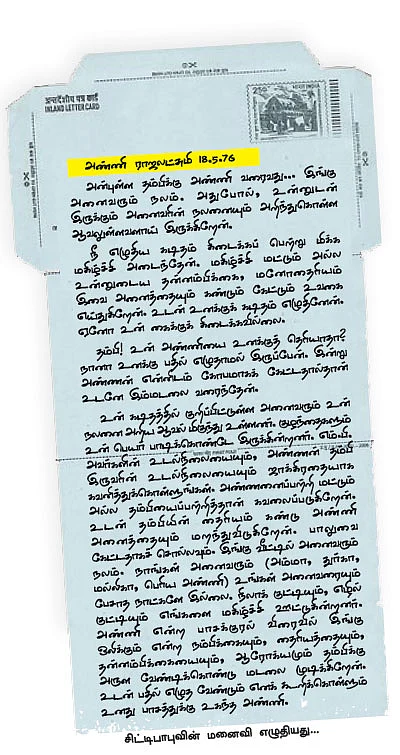 अन्तर्देशीय पत्र कार्ड
INLAND LETTER CARD
भारत INDIA
அண்ணி ராஜலட்சுமி 18.5.76
அன்புள்ள தம்பிக்கு அண்ணி வரைவது... இங்கு
அனைவரும் நலம். அதுபோல், உன்னுடன்
இருக்கும் அனைவரின் நலனையும் அறிந்துகொள்ள
ஆவலுள்ளவளாய் இருக்கிறேன்.
நீ எழுதிய கடிதம் கிடைக்கப் பெற்று மிக்க
மகிழ்ச்சி அடைந்தேன். மகிழ்ச்சி மட்டும் அல்ல
உன்னுடைய தன்னம்பிக்கை, மனோதைரியம்
இவை அனைத்தையும் கண்டும் கேட்டும் உவகை
எய்துகிறேன். உடன் உனக்குக் கடிதம் எழுதினேன்.
ஏனோ உன் கைக்குக் கிடைக்கவில்லை.
தம்பி! உன் அண்ணியை உனக்குத் தெரியாதா?
நானா உனக்கு பதில் எழுதாமல் இருப்பேன். இன்று
அண்ணன் என்னிடம் கோபமாகக் கேட்டதால்தான்
உடனே இம்மடலை வரைந்தேன்.
உன் கடிதத்தில் குறிப்பிட்டுள்ள அனைவரும் உன்
நலனை அறிய ஆவல் மிகுந்து உள்ளனர். குழந்தைகளும்
உன் பெயர் பாடிக்கொண்டே இருக்கின்றனர். எம்.பி.
அவர்களின் உடல்நிலையையும், அண்ணன் தம்பி
இருவரின் உடல்நிலையையும் ஜாக்கிரதையாக
கவனித்துக்கொள்ளுங்கள். அண்ணனைப்பற்றி மட்டும்
அல்ல தம்பியைப்பற்றித்தான் கவலைப்படுகிறேன்.
உடன் தம்பியின் தைரியம் கண்டு அண்ணி
அனைத்தையும் மறந்துவிடுகிறேன். பாலுவை
கேட்டதாகச் சொல்லவும். இங்கு வீட்டில் அனைவரும்
நலம். நாங்கள் அனைவரும் (அம்மா, துர்கா,
மல்லிகா, பெரிய அண்ணி) உங்கள் அனைவரையும்
பேசாத நாட்களே இல்லை. நீலாக் குட்டியும், எழில்
குட்டியும் எங்களை மகிழ்ச்சி ஊட்டுகின்றனர்.
அண்ணி என்ற பாசக்குரல் விரைவில் இங்கு
ஒலிக்கும் என்ற நம்பிக்கையும், தைரியத்தையும்,
தன்னம்பிக்கையையும், ஆரோக்யமும் தம்பிக்கு
அருள வேண்டிக்கொண்டு மடலை முடிக்கிறேன்.
உடன் பதில் எழுத வேண்டும் எனக் கூறிக்கொள்ளும்
உனது பாசத்துக்கு உகந்த அண்ணி.
சிட்டிபாபுவின் மனைவி எழுதியது...